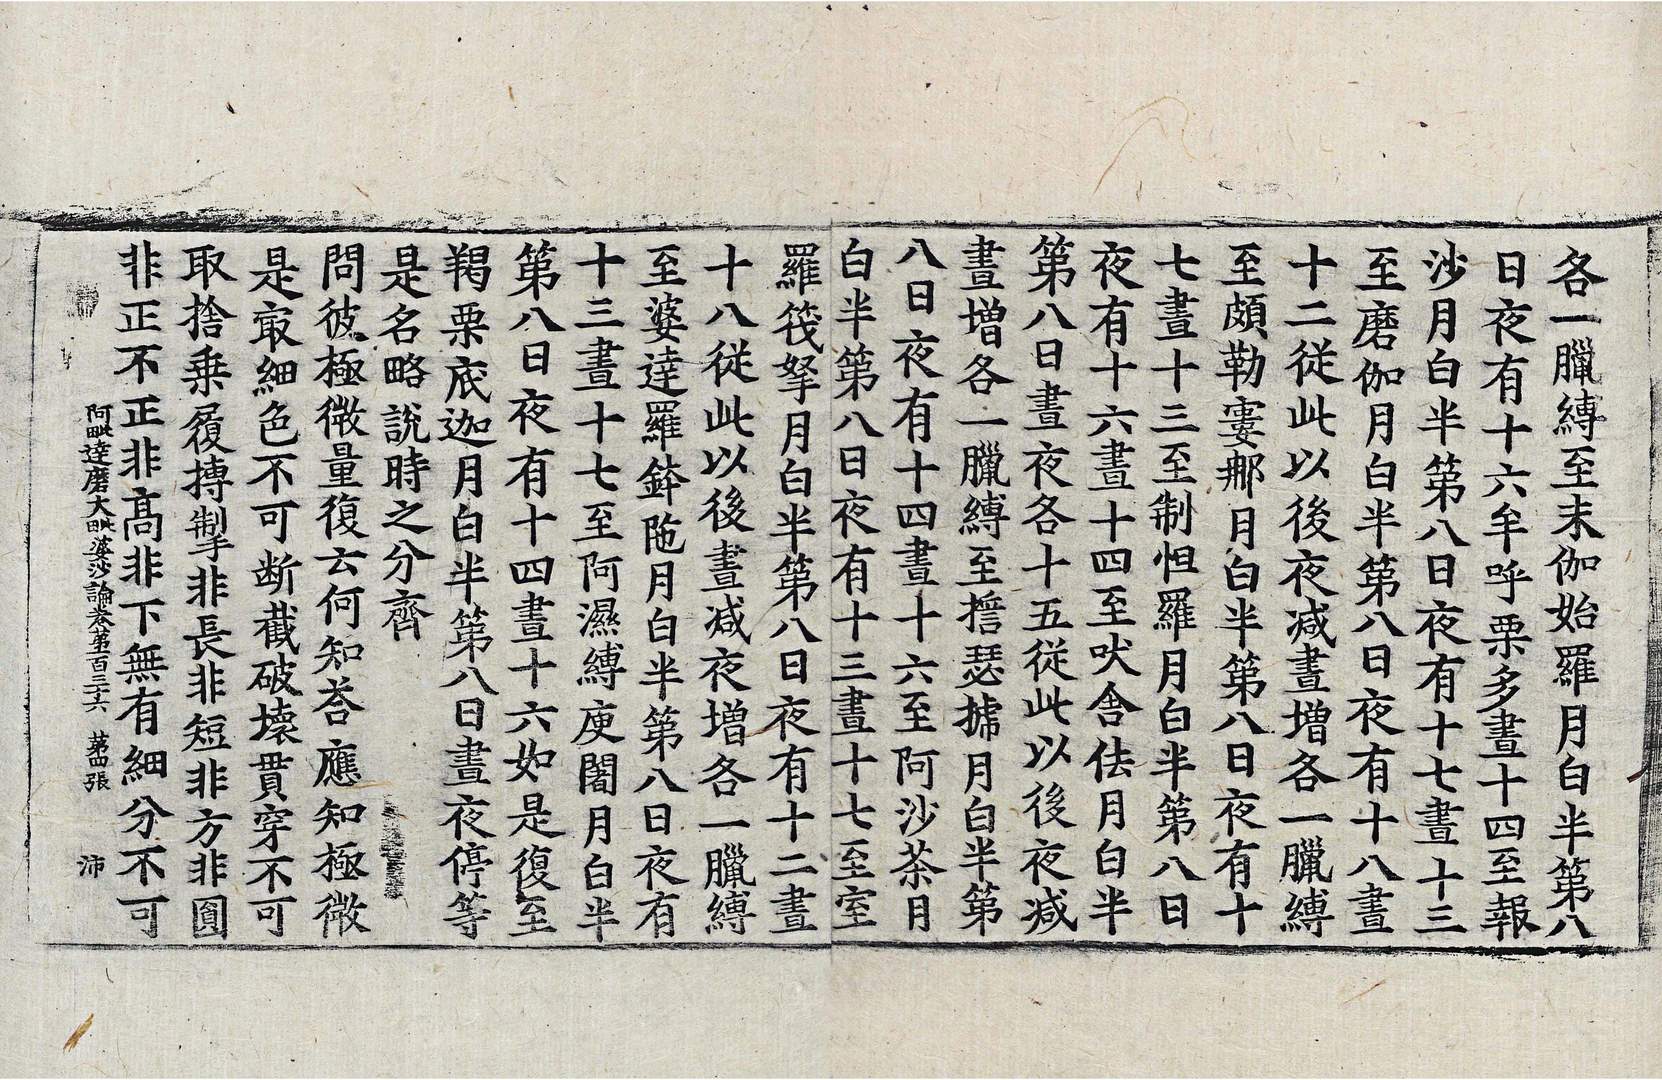 各一臘縛至末伽始羅月白半第八
日夜有十六牟呼栗多晝十四至報
沙月白半第八日夜有十七晝十三
至磨伽月白半第八日夜有十八晝
十二從此以後夜减晝增各一臘縛
至頗勒窶那月白半第八日夜有十
七晝十三至制怛羅月白半第八日
夜有十六晝十四至吠舍佉月白半
第八日晝夜各十五從此以後夜减
晝增各一臘縛至誓瑟搋月白半第
八日夜有十四晝十六至阿沙荼月
白半第八日夜有十三晝十七至室
羅筏拏月白半第八日夜有十二晝
十八從此以後晝减夜增各一臘縛
至婆達羅鉢陁月白半第八日夜有
十三晝十七至阿濕縛庾闍月白半
第八日夜有十四晝十六如是復至
羯栗底迦月白半第八日晝夜停等
是名略說時之分齊
問彼極微量復云何知荅應知極微
是㝡細色不可断截破壞貫穿不可
取捨乗履摶掣非長非短非方非圓
非正不正非高非下無有細分不可
阿毗達磨大毗婆沙論卷第百三十六　第四張　沛